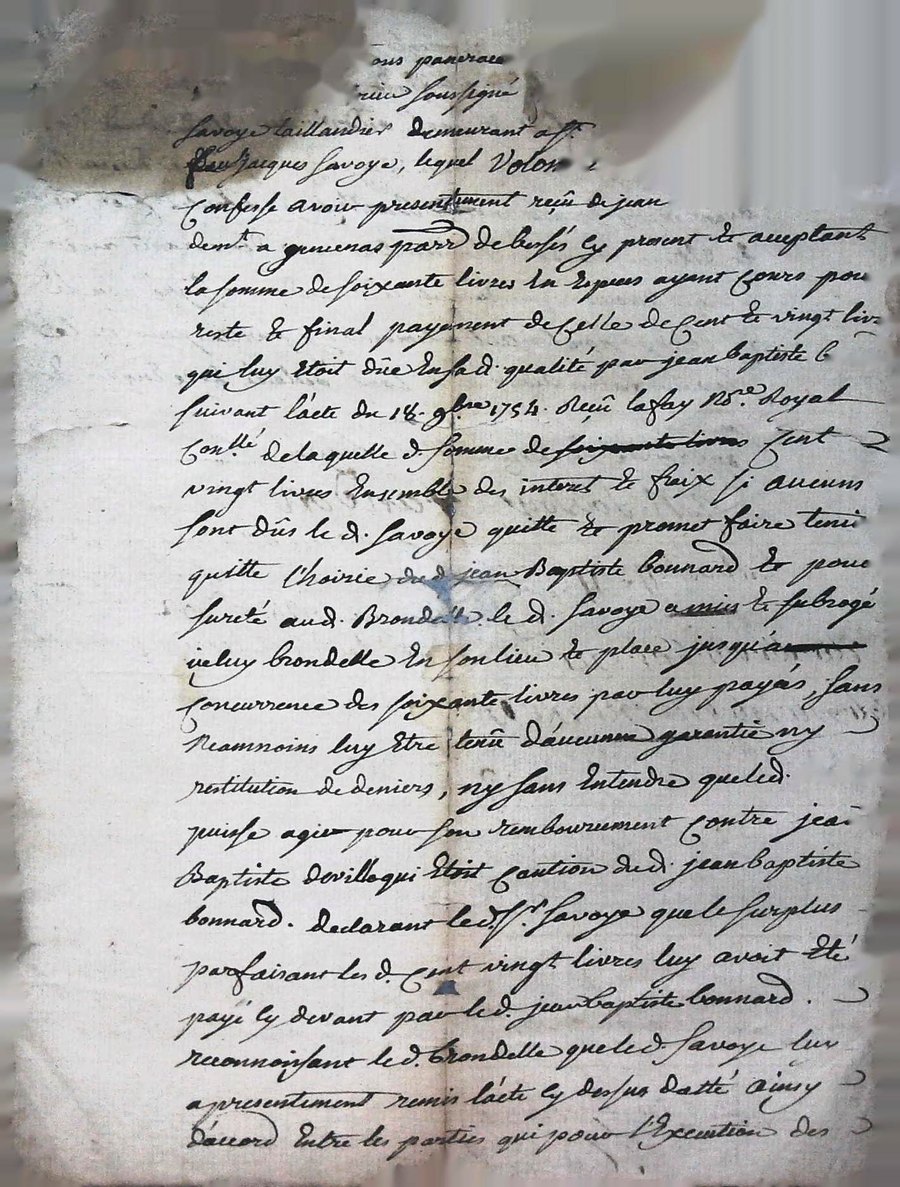 ous pancrace
soussigné
Savoye taillandier demeurant a St.
feu Jacques Savoye, lequel Volon
Confesse avoir presentement reçû de jean
demt. a parr. de bessés cy present & acceptant
la somme de soixante livres En Especes ayant Cours pour
reste & final payement de Celle de Cent & vingt liv
qui luy Etoit dûe En sa d. qualité par jean baptiste b
suivant lácte du 18. 9bre 1754. Reçû lafay Nore. Royal
Conllé delaquelle d. somme de soixante livres Cent
vingt livres Ensemble des interets & fraix si aucuns
sont dûs le d. Savoye quitte & promet faire tenir
quitte l'hoirie du d. jean Baptiste bonnard & pour
sureté aud. Brondelle le d. Savoye a mis & subrogé
iceluy brondelle En son lieu & place jusqu'a
Concurrence des soixante livres par luy payés, sans
Neamnoins luy Etre tenû d'aucune garantie ny
restitution de deniers, ny sans Entendre que led.
puisse agir pour son remboursement Contre jean
Baptiste deville qui Etoit Caution dud. jean baptiste
bonnard. declarant led. Sr. Savoye que le surplus
parfaisant les d. Cent vingt livres luy avoit Eté
payé Cy devant par le d. jean baptiste bonnard.
reconnoissant le d. brondelle que le d. Savoye luy
a presentement remis lácte Cy dessus datté ainsy
dáccord Entre les parties qui pour l'Execution des